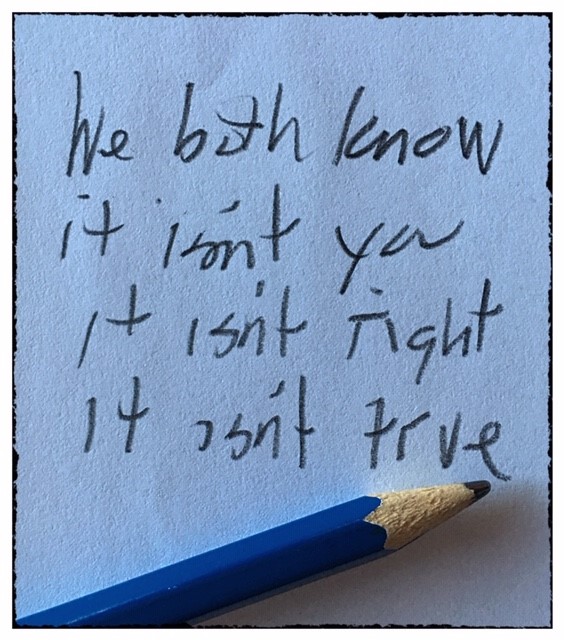 We both know
it isn't you
it isn't right
It isn't true